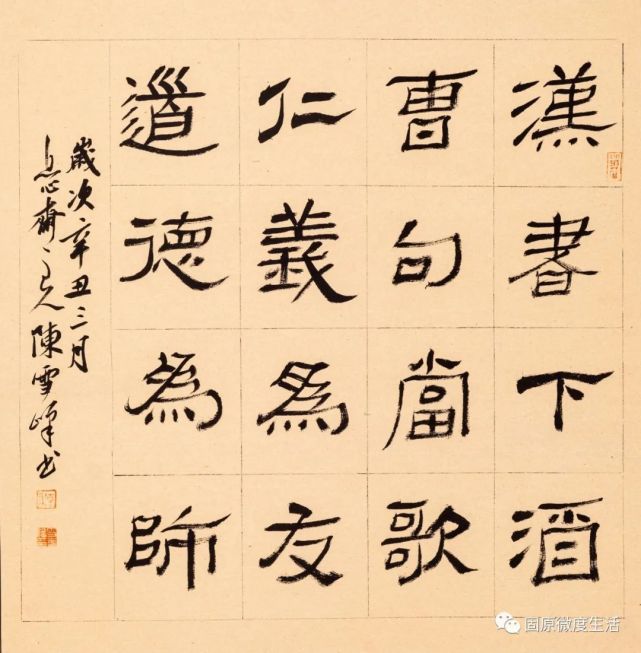 漢書下酒
曹句當歌
仁義為友
道德為師
歲次辛丑三月
息心齋主人陳雪峰书
固原微度生活